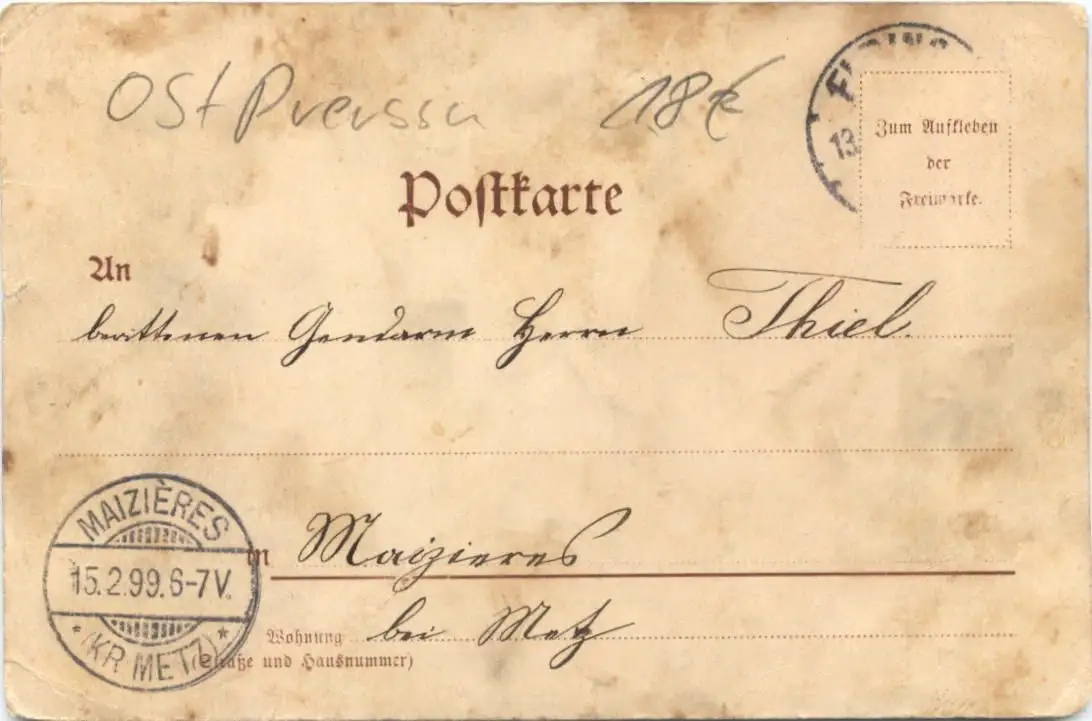 OstPreussn 18€
ELBING
13
Zum Aufkleben
der
Freimarke.
Postkarte
An
berittenen Gendarm Herrn Thiel.
MAIZIÈRES
15.2.99.6-7V.
* (KR METZ) *
in Maizieres
Wohnung bei Metz
(Straße und Hausnummer)